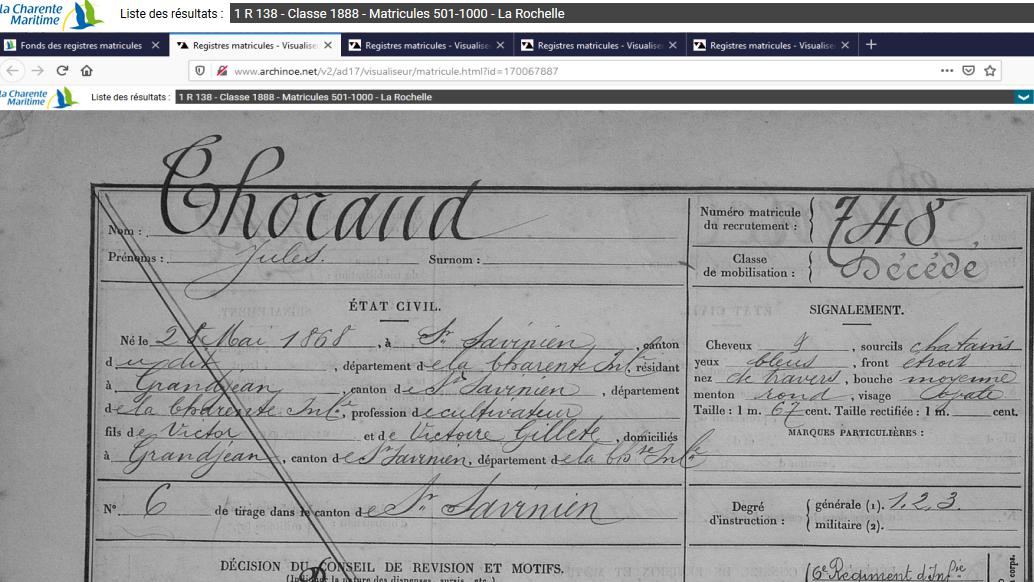 la Charente
Maritime
Liste des résultats : 1 R 138 - Classe 1888 - Matricules 501-1000 - La Rochelle
Fonds des registres matricules × Registres matricules - Visualise × Registres matricules - Visualise × Registres matricules - Visualise × Registres matricules - Visualise × +
www.archinoe.net/v2/ad17/visualiseur/matricule.html?id=170067887
la Charente
Maritime
Liste des résultats : 1 R 138 - Classe 1888 - Matricules 501-1000 - La Rochelle
Nom : Thoraud
Prénoms : Jules. Surnom :
Numéro matricule
du recrutement : 748
Classe
de mobilisation : Décédé
ÉTAT CIVIL.
Né le 25 Mai 1868, à St Savinien, canton
dudit, département de la Charente Infre résidant
à Grandjean, canton de St Savinien, département
de la Charente Infre, profession de cultivateur
fils de Victor et de Victoire Gillete, domiciliés
à Grandjean, canton de St Savinien, département de la Chte Infre
N° 6 de tirage dans le canton de St Savinien
DÉCISION DU CONSEIL DE REVISION ET MOTIFS.
SIGNALEMENT.
Cheveux, sourcils chatains
yeux bleus, front étroit
nez de travers, bouche moyenne
menton rond, visage ovale
Taille : 1 m. 67 cent. Taille rectifiée : 1 m. cent.
MARQUES PARTICULIÈRES :
Degré
d'instruction :
générale (1). 1.2.3.
militaire (2).
6e Régiment d'Infrie